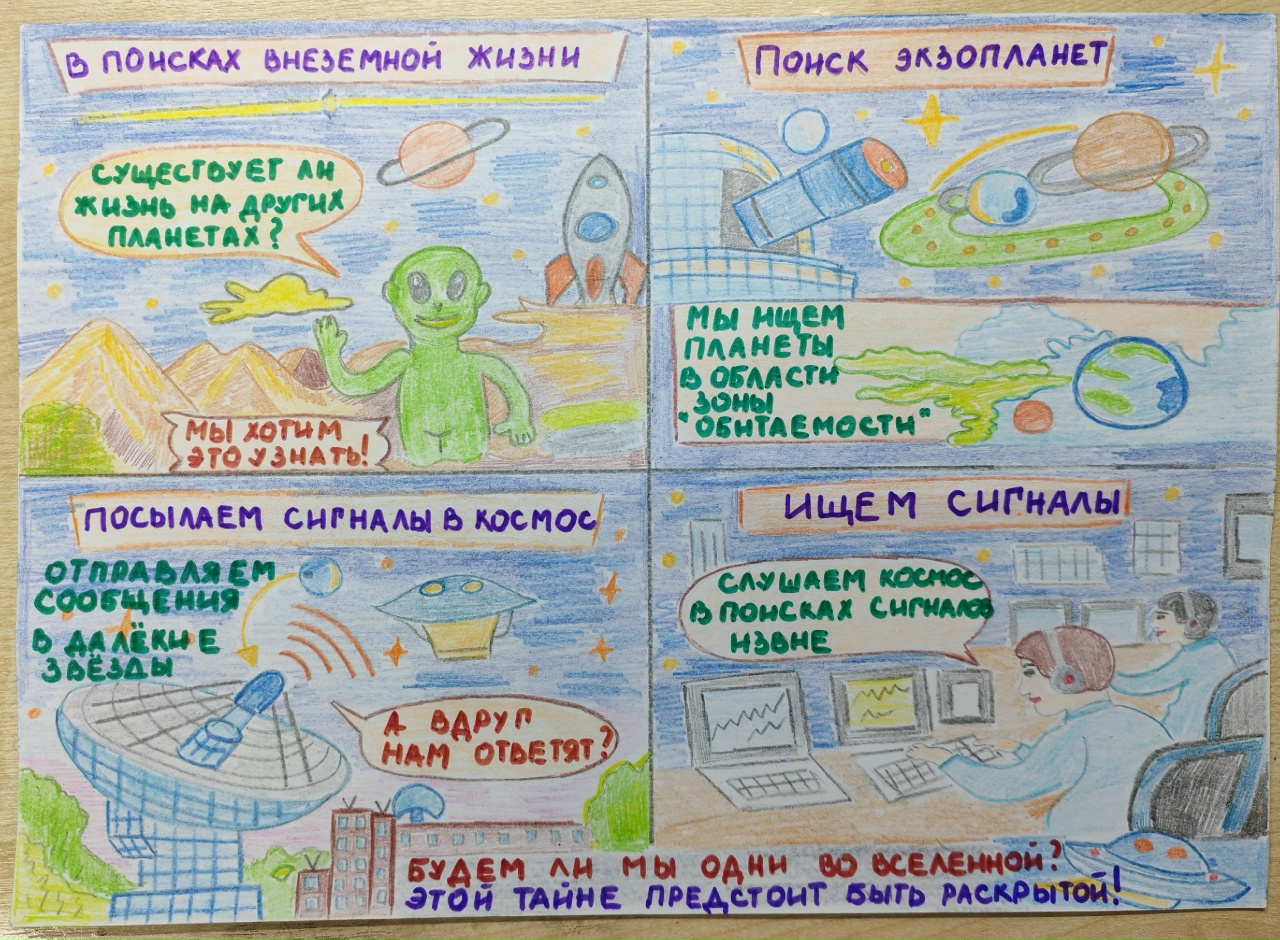 В ПОИСКАХ ВНЕЗЕМНОЙ ЖИЗНИ
СУЩЕСТВУЕТ ЛИ
ЖИЗНЬ НА ДРУГИХ
ПЛАНЕТАХ?
МЫ ХОТИМ
ЭТО УЗНАТЬ!
ПОИСК ЭКЗОПЛАНЕТ
МЫ ИЩЕМ
ПЛАНЕТЫ
В ОБЛАСТИ
ЗОНЫ
"ОБИТАЕМОСТИ"
ПОСЫЛАЕМ СИГНАЛЫ В КОСМОС
ОТПРАВЛЯЕМ
СООБЩЕНИЯ
В ДАЛЁКИЕ
ЗВЁЗДЫ
А ВДРУГ
НАМ ОТВЕТЯТ?
ИЩЕМ СИГНАЛЫ
СЛУШАЕМ КОСМОС
В ПОИСКАХ СИГНАЛОВ
ИЗВНЕ
БУДЕМ ЛИ МЫ ОДНИ ВО ВСЕЛЕННОЙ?
ЭТОЙ ТАЙНЕ ПРЕДСТОИТ БЫТЬ РАСКРЫТОЙ!